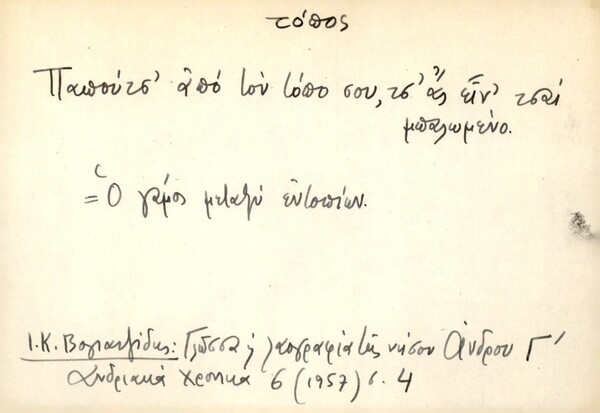 τόπος
Παπούτσ' ἀπό τόν τόπο σου, τσ' ἄς εἶν' τσαί
μπαλωμένο.
= Ὁ γάμος μεταξύ ἐντοπίων.
Ι.Κ. Βογιατζίδης: Γλῶσσα ἡ λαογραφία τῆς νήσου Ἄνδρου Γ'
Ἀνδριακά Χρονικά 6 (1957) σ. 4